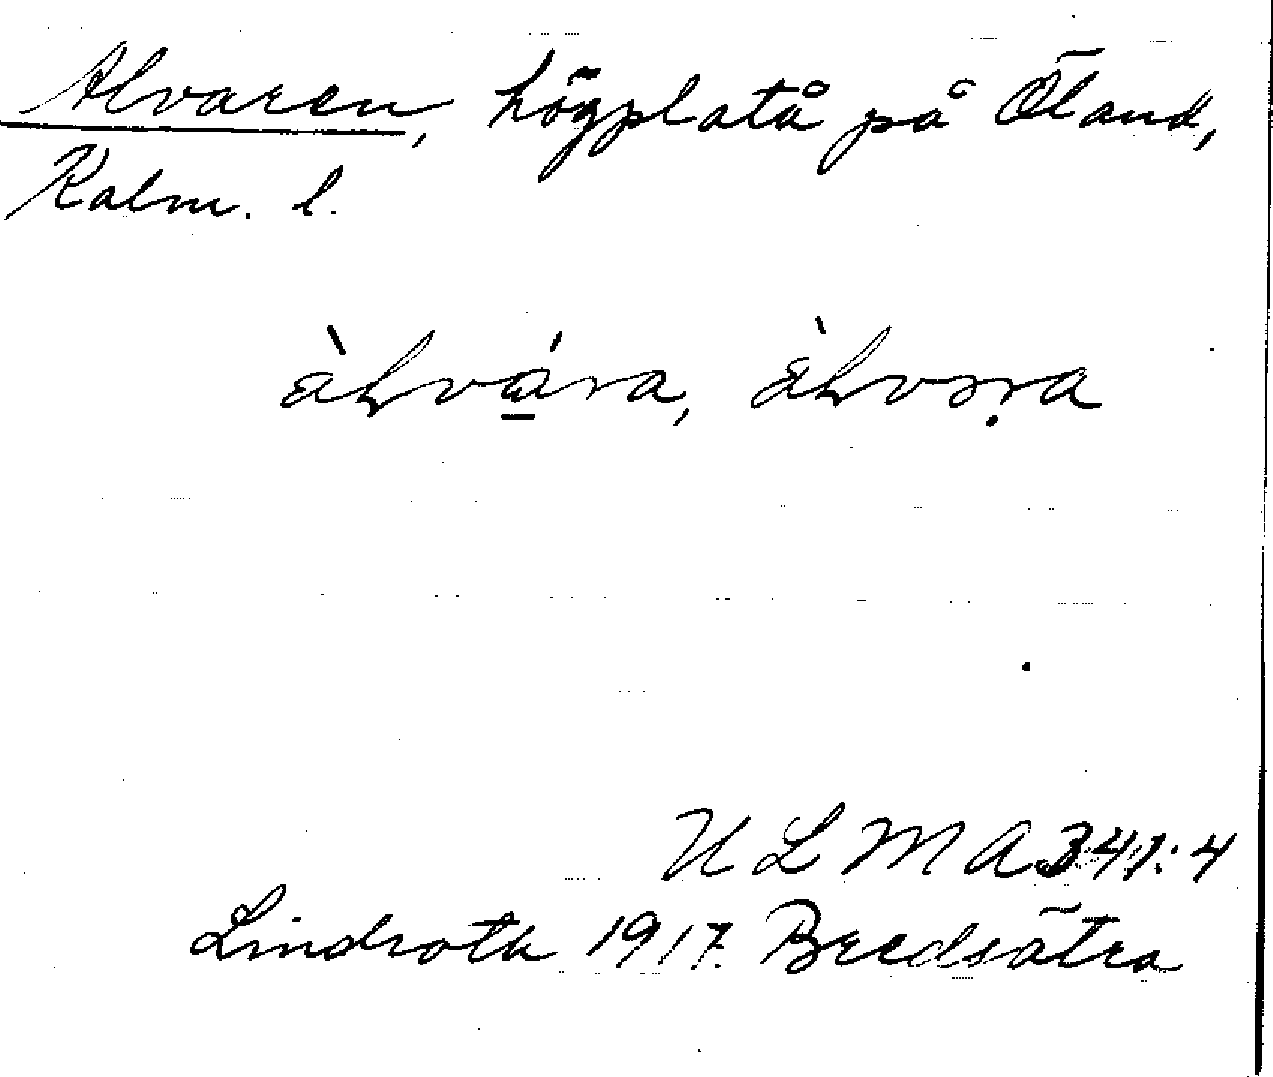 Alvaren, högplatå på Öland,
Kalm. l.
U L M A 341:4
Lindroth 1917. Bredsätra